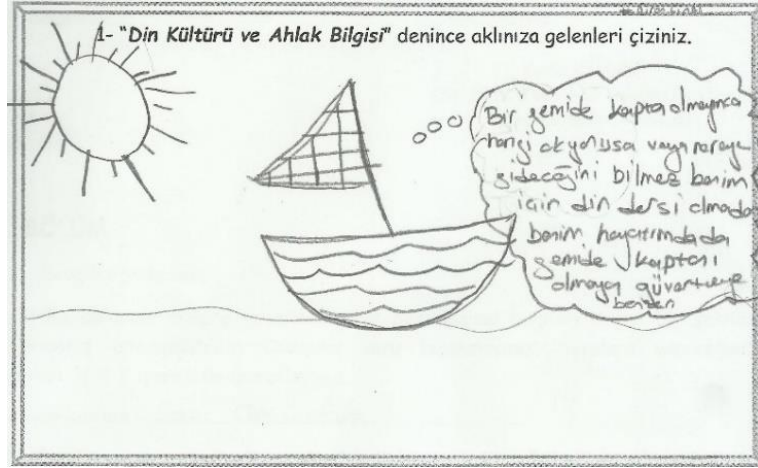 1- "Din Kültürü ve Ahlak Bilgisi" denince aklınıza gelenleri çiziniz.
Bir gemide kaptan olmayınca
hangi okyonusa veya nereye
gideceğini bilmez benim
için din dersi olmada
benim hayatımdada
gemide kaptanı
olmayan güverteye
benzer